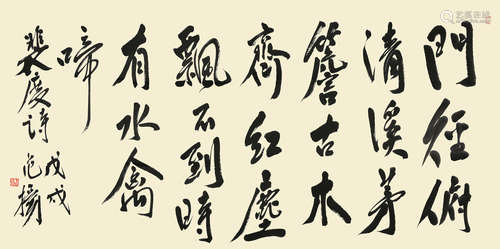 門徑俯
清溪茅
簷古木
齊紅塵
飄不到時
有水禽
啼
裴度詩
戊戌
范揚